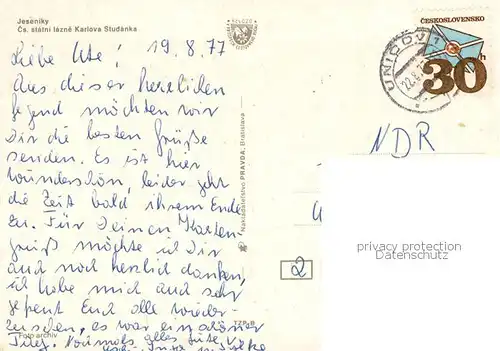 Jeseníky
Čs. státní lázně Karlova Studánka
Liebe Ute! 19.8.77
Aus dieser herrlichen
Gegend möchten wir
Dir die besten Grüße
senden. Es ist hier
wunderschön, leider geht
die Zeit bald ihrem Ende
zu. Für Deinen Karten-
gruß möchte ich Dir
auch noch herzlich danken,
ich habe mich auch sehr
gefreut Euch alle wieder-
zusehen, es war ein schöner
Tag. Nochmals alles Gute
Foto archiv
Nakladatelstvo PRAVDA, Bratislava
ČESKOSLOVENSKO
30h
UNIČOV 1
NDR
2
privacy protection
Dokumentenschutz